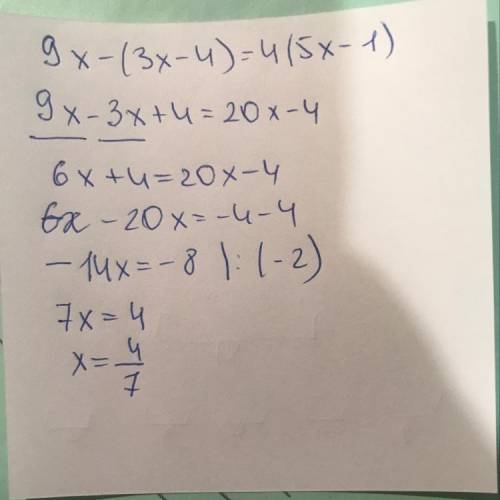 9x-(3x-4)=4(5x-1)
9x-3x+4=20x-4
6x+4=20x-4
6x-20x=-4-4
-14x=-8 |:(-2)
7x=4
x=4/7